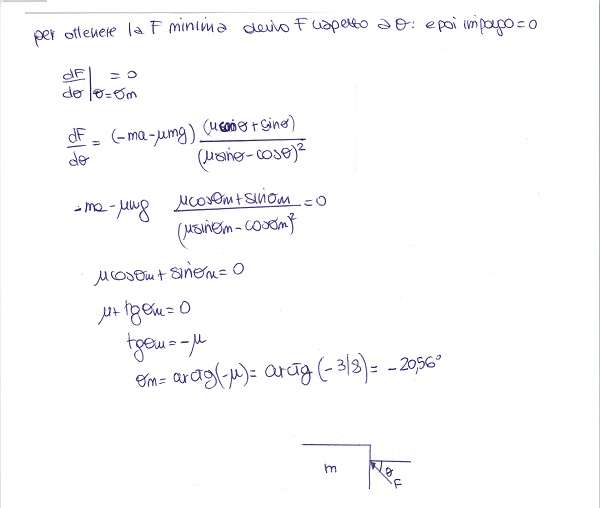 per ottenere la F minima derivo F rispetto a θ: e poi impongo = 0
dF/dθ |θ=θm = 0
dF/dθ = (-ma-μmg) (μcosθ + sinθ)/(μsinθ - cosθ)²
-ma-μmg (μcosθm + sinθm)/(μsinθm - cosθm)² = 0
μcosθm + sinθm = 0
μ + tgθm = 0
tgθm = -μ
θm = arctg(-μ) = arctg(-3/8) = -20,56°
m
θ
F